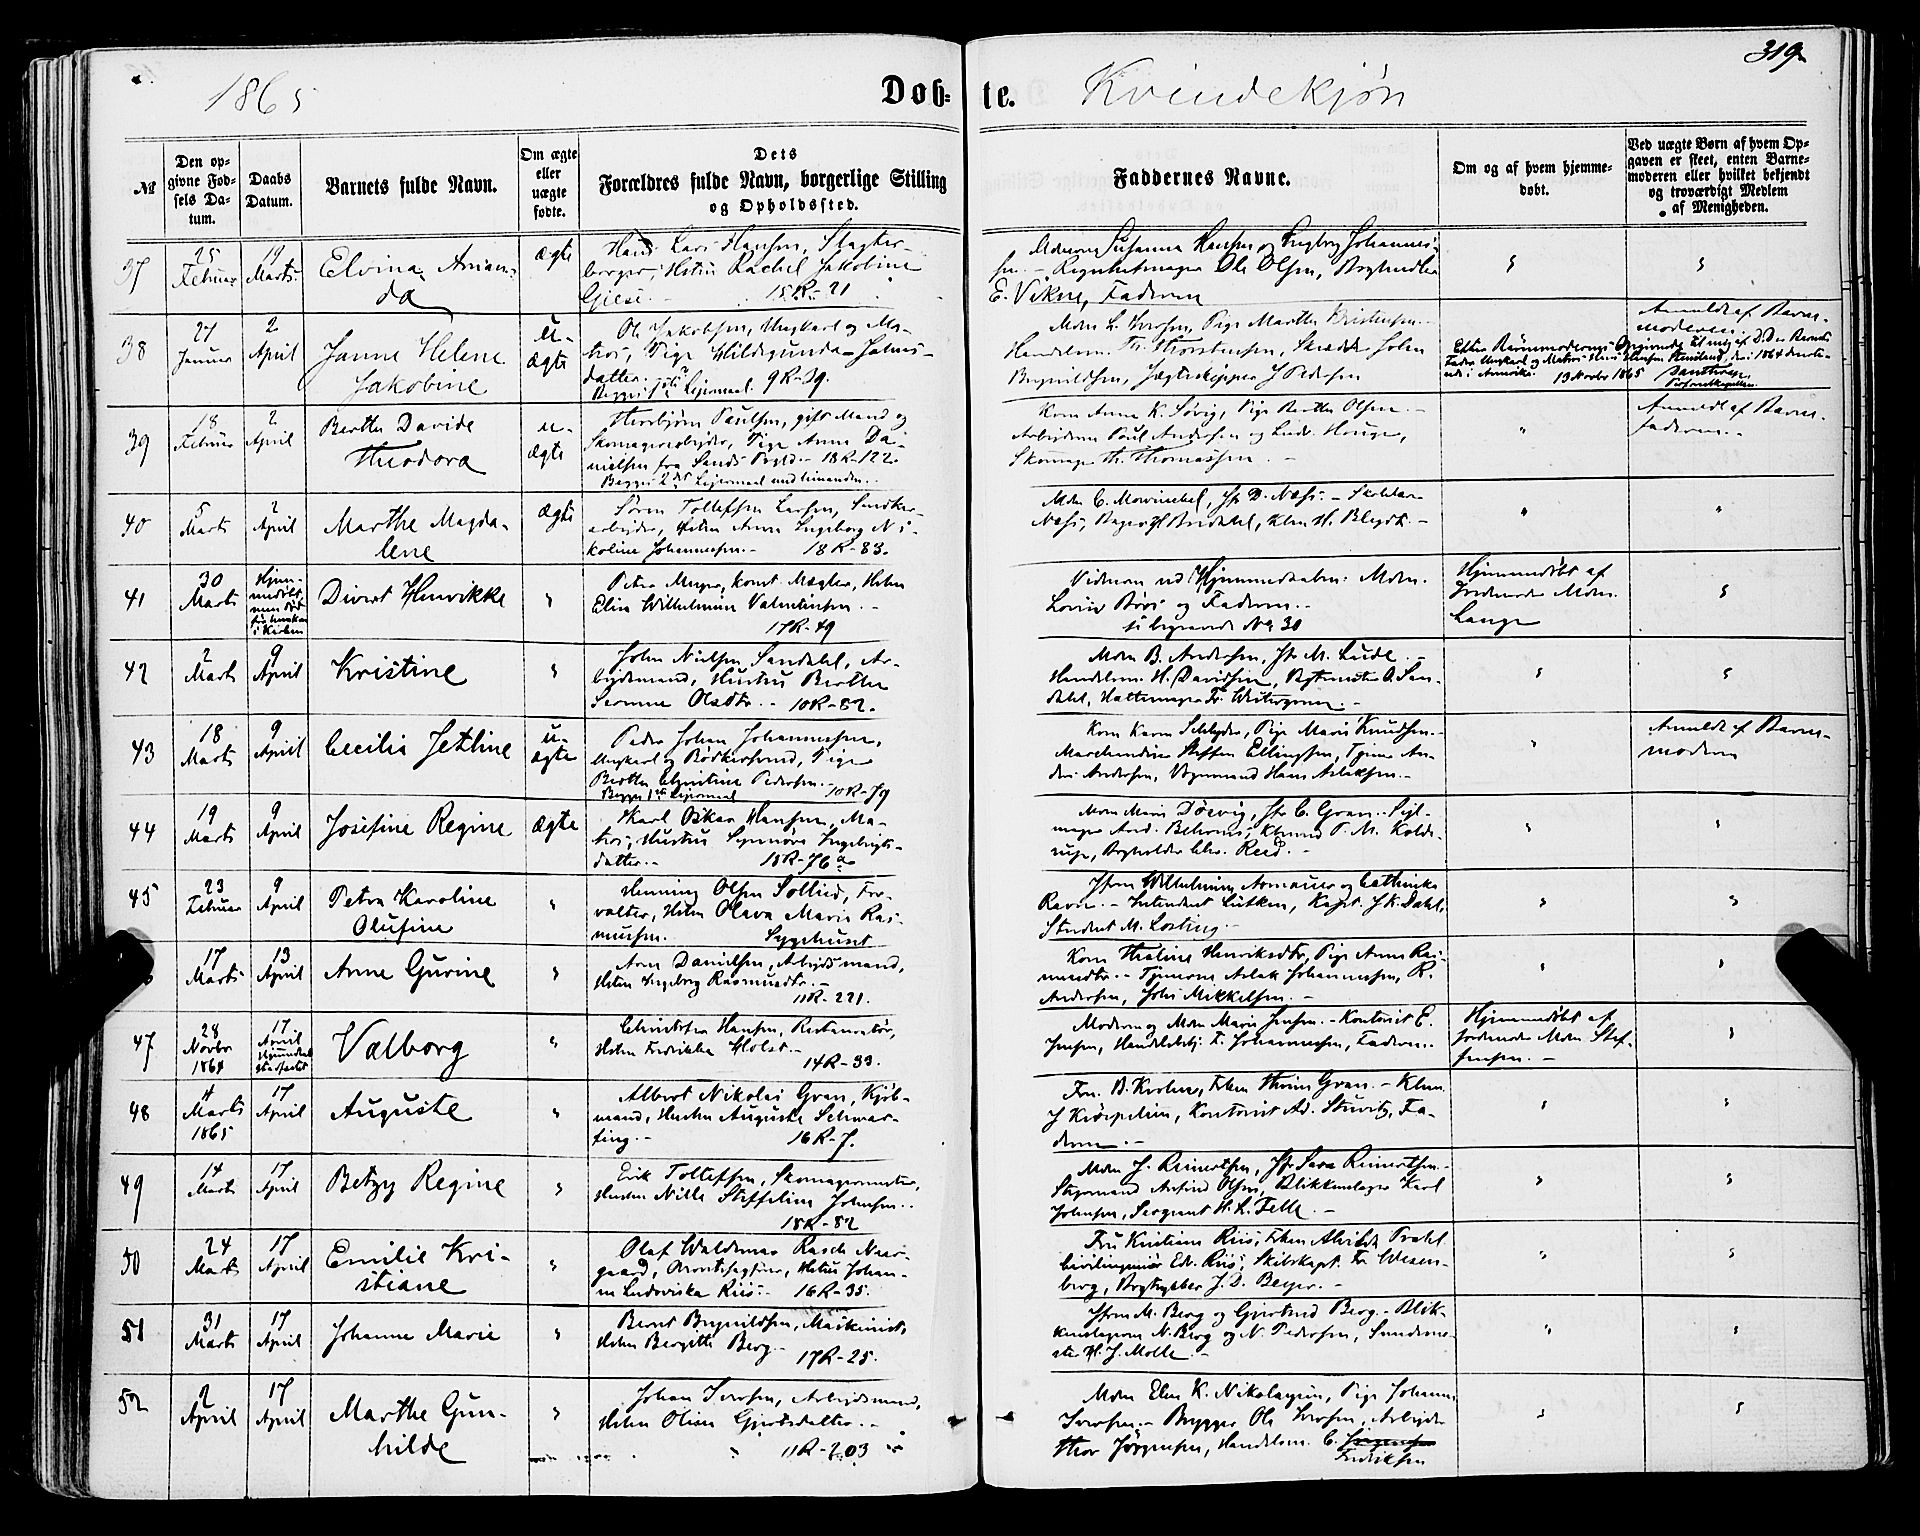 1865
Døb-
te.
Kvindekjøn
319
№
Den op-
givne Fød-
sels Da-
tum.
Daabs
Datum.
Barnets fulde Navn.
Om ægte
eller
uægte
fødte.
Dets
Forældres fulde Navn, borgerlige Stilling
og Opholdssted.
Faddernes Navne.
Om og af hvem hjemme-
døbt.
Ved uægte Børn af hvem Op-
gaven er skeet, enten Barne-
moderen eller hvilket bekjendt
og troværdigt Medlem
af Menigheden.
37
25
Februar
19
Marts
Elvina Aman-
da
ægte
Hans Lars Hansen, Slagter-
borger, Hstru Rachel Jakobine
Giese.
15R-21
Moderen, Susanna Hansen og Ingborg Johannes-
sen. - Ole Olsen,
E. Vikne, Faderen
38
27
Januar
2
April
Janne Helene
Jakobine
u-
ægte
Ole Jakobsen, Ungkarl og Ma-
tros, Pige Hildegunda Johns-
datter.
Begges 1ste Leiermaal. 9R-39.
Mdm L. Iversen, Pige Marthe Kristensen.
Handelsm. Th. Thorstensen, John
Brynildsen, Jægteskipper J Pedersen
Anmeldt af Barne-
moderen.
13 Novbr 1865
39
18
Februar
2
April
Berthe Davide
Theodora
u-
ægte
Thorbjørn Paulsen, gift Mand og
Skomagerarbeider, Pige Anne Da-
nielsen fra Sands Prgld. - 18R-122
Begges 2det Leiermaal
Kone Anne K. Søvig, Pige Berthe Olsen. -
Arbeiderne Paul Andersen og Hauge,
Skomager Th. Thomassen. -
Anmeldt af Barne-
faderen.
40
5
Marts
2
April
Marthe Magda-
lene
ægte
Søren Tollefsen Larsen,
arbeider, Hstru Anne Ingeborg Ni-
koline Johannessen. - 18R-83.
Mdm C. Mowinckel, Jfr D. Næss -
Næss, Bager Bredahl,
41
30
Marts
Hjem-
medøbt
Divert Henrikke
Peter Meyer, konst. Mægler, Hstru
Elise Wilhelmine Valentinsen. -
17R-49
Vidneren ved Hjemmedaaben: Mdm.
Lovise og Faderen.
No 30
Hjemmedøbt af
Jordmoder Mdm.
Lange
42
2
Marts
9
April
Kristine
John Nielsen Sandahl, Ar-
beidsmand, Hustru Berthe
Olsdtr. - 10R-82.
Mdm B. Andersen, Jfr M. Lude. -
Handelsm. H. Davidsen, O. San-
dahl, Hattemager Fr.
43
18
Marts
9
April
Cecilia Jetline
u-
ægte
Peder Johan Johannessen,
Ungkarl og Bødkersvend, Pige
Berthe Christine Pedersen. -
Begges 1ste Leiermaal 10R-79
Kone Karen Selbyder, Pige Marie Knudsen. -
Steffen Ellingsen, Tjener An-
dr. Andersen, Vognmand Hans Aslaksen. -
Anmeldt af Barne-
moderen
44
19
Marts
9
April
Josefine Regine
ægte
Karl Oskar Hansen, Ma-
tros, Hustru Synnøve Ingebrigts-
datter. -
18R-76a
Mdm Marie Døevig, Jfr C. Gran. - Seil-
mager Andr. Behrens, Klmnd P. M. Kold-
rup, Bogholder Chr. Reed. -
45
23
Februar
9
April
Petra Karoline
Olufine
Henning Olsen Sollied, For-
valter, Hstru Olava Marie Ras-
mussen.
Sygehuset
Jfrne Wilhelmine Armauer og Cathinka
Ravn. - Intendent Lütken, Kapt. J. K. Dahl,
Student M. Losting. -
17
Marts
13
April
Anne Gurine
Arne Danielsen, Arbeidsmand,
Hstru Ingeborg Rasmusdtr. -
11R-221.
Kone Thaline Henriksdtr, Pige Anne Ras-
musdtr. - Tjenerne Aslak Johannessen, R.
Andersen, Johs Mikkelsen. -
47
28
Novbr
1864
17
April
Valborg
Christopher Hansen, Restauratør,
Hstru Fredrikke Holst. -
14R-33.
Moderen og Mdm Marie Jensen. - Kontorist E.
Jensen, Handelsbtj. F. Johannessen, Faderen.
Hjemmedøbt af
Jordmoder Mdm Stef-
fensen. -
48
4
Marts
1865
17
April
Auguste
Albert Nikolai Gran, Kjøb-
mand, Hustru Auguste Schwar-
ting. -
16R-7.
Fru B. Krohn, Frkn Gran. - Klm.
J Kröepelien, Kontorist Ad. Sturitz, Fa-
deren. -
49
14
Marts
17
April
Betzy Regine
Erik Tollefsen, Skomagermester,
Hustru Nille Steffeline Johnsen.
18R-82
Mdm J. Reinertsen, Jfr Sara Reinertsen. -
Styrmand Arfind Olsen, Blikkenslager Karl
Johnsen, Sergeant H. L. Felle. -
50
24
Marts
17
April
Emilie Kri-
stiane
Olaf Waldemar Rasch Nær-
gaard, Hstru Johan-
ne Ludoviska Riis. - 16R-35.
Fru Kristiane Riis, Frkn Alvilde Prahl
Civilingeniør Edv. Riis, Skibskapt. Fr Wesen-
berg, Bogtrykker J. D. Beyer. -
51
31
Marts
17
April
Johanne Marie
Bernt Brynildsen, Maskinist,
Hstru Bergitte Berg. -
17R-25.
Jfrne M. Berg og Gjertrud Berg. - Blik-
kenslagerne N. Berg og N. Pedersen,
H. J. Molle. -
52
2
April
17
April
Marthe Gun-
hilde
Johan Iversen, Arbeidsmand,
Hstru Oline Gjertsdatter. -
11R-203
Mdm Elen K. Nikolaysen, Pige Johanne
Iversen. - Brygger Ole Iversen, Arbeider
Thor Jørgensen, Handelsm. C.
Fredriksen